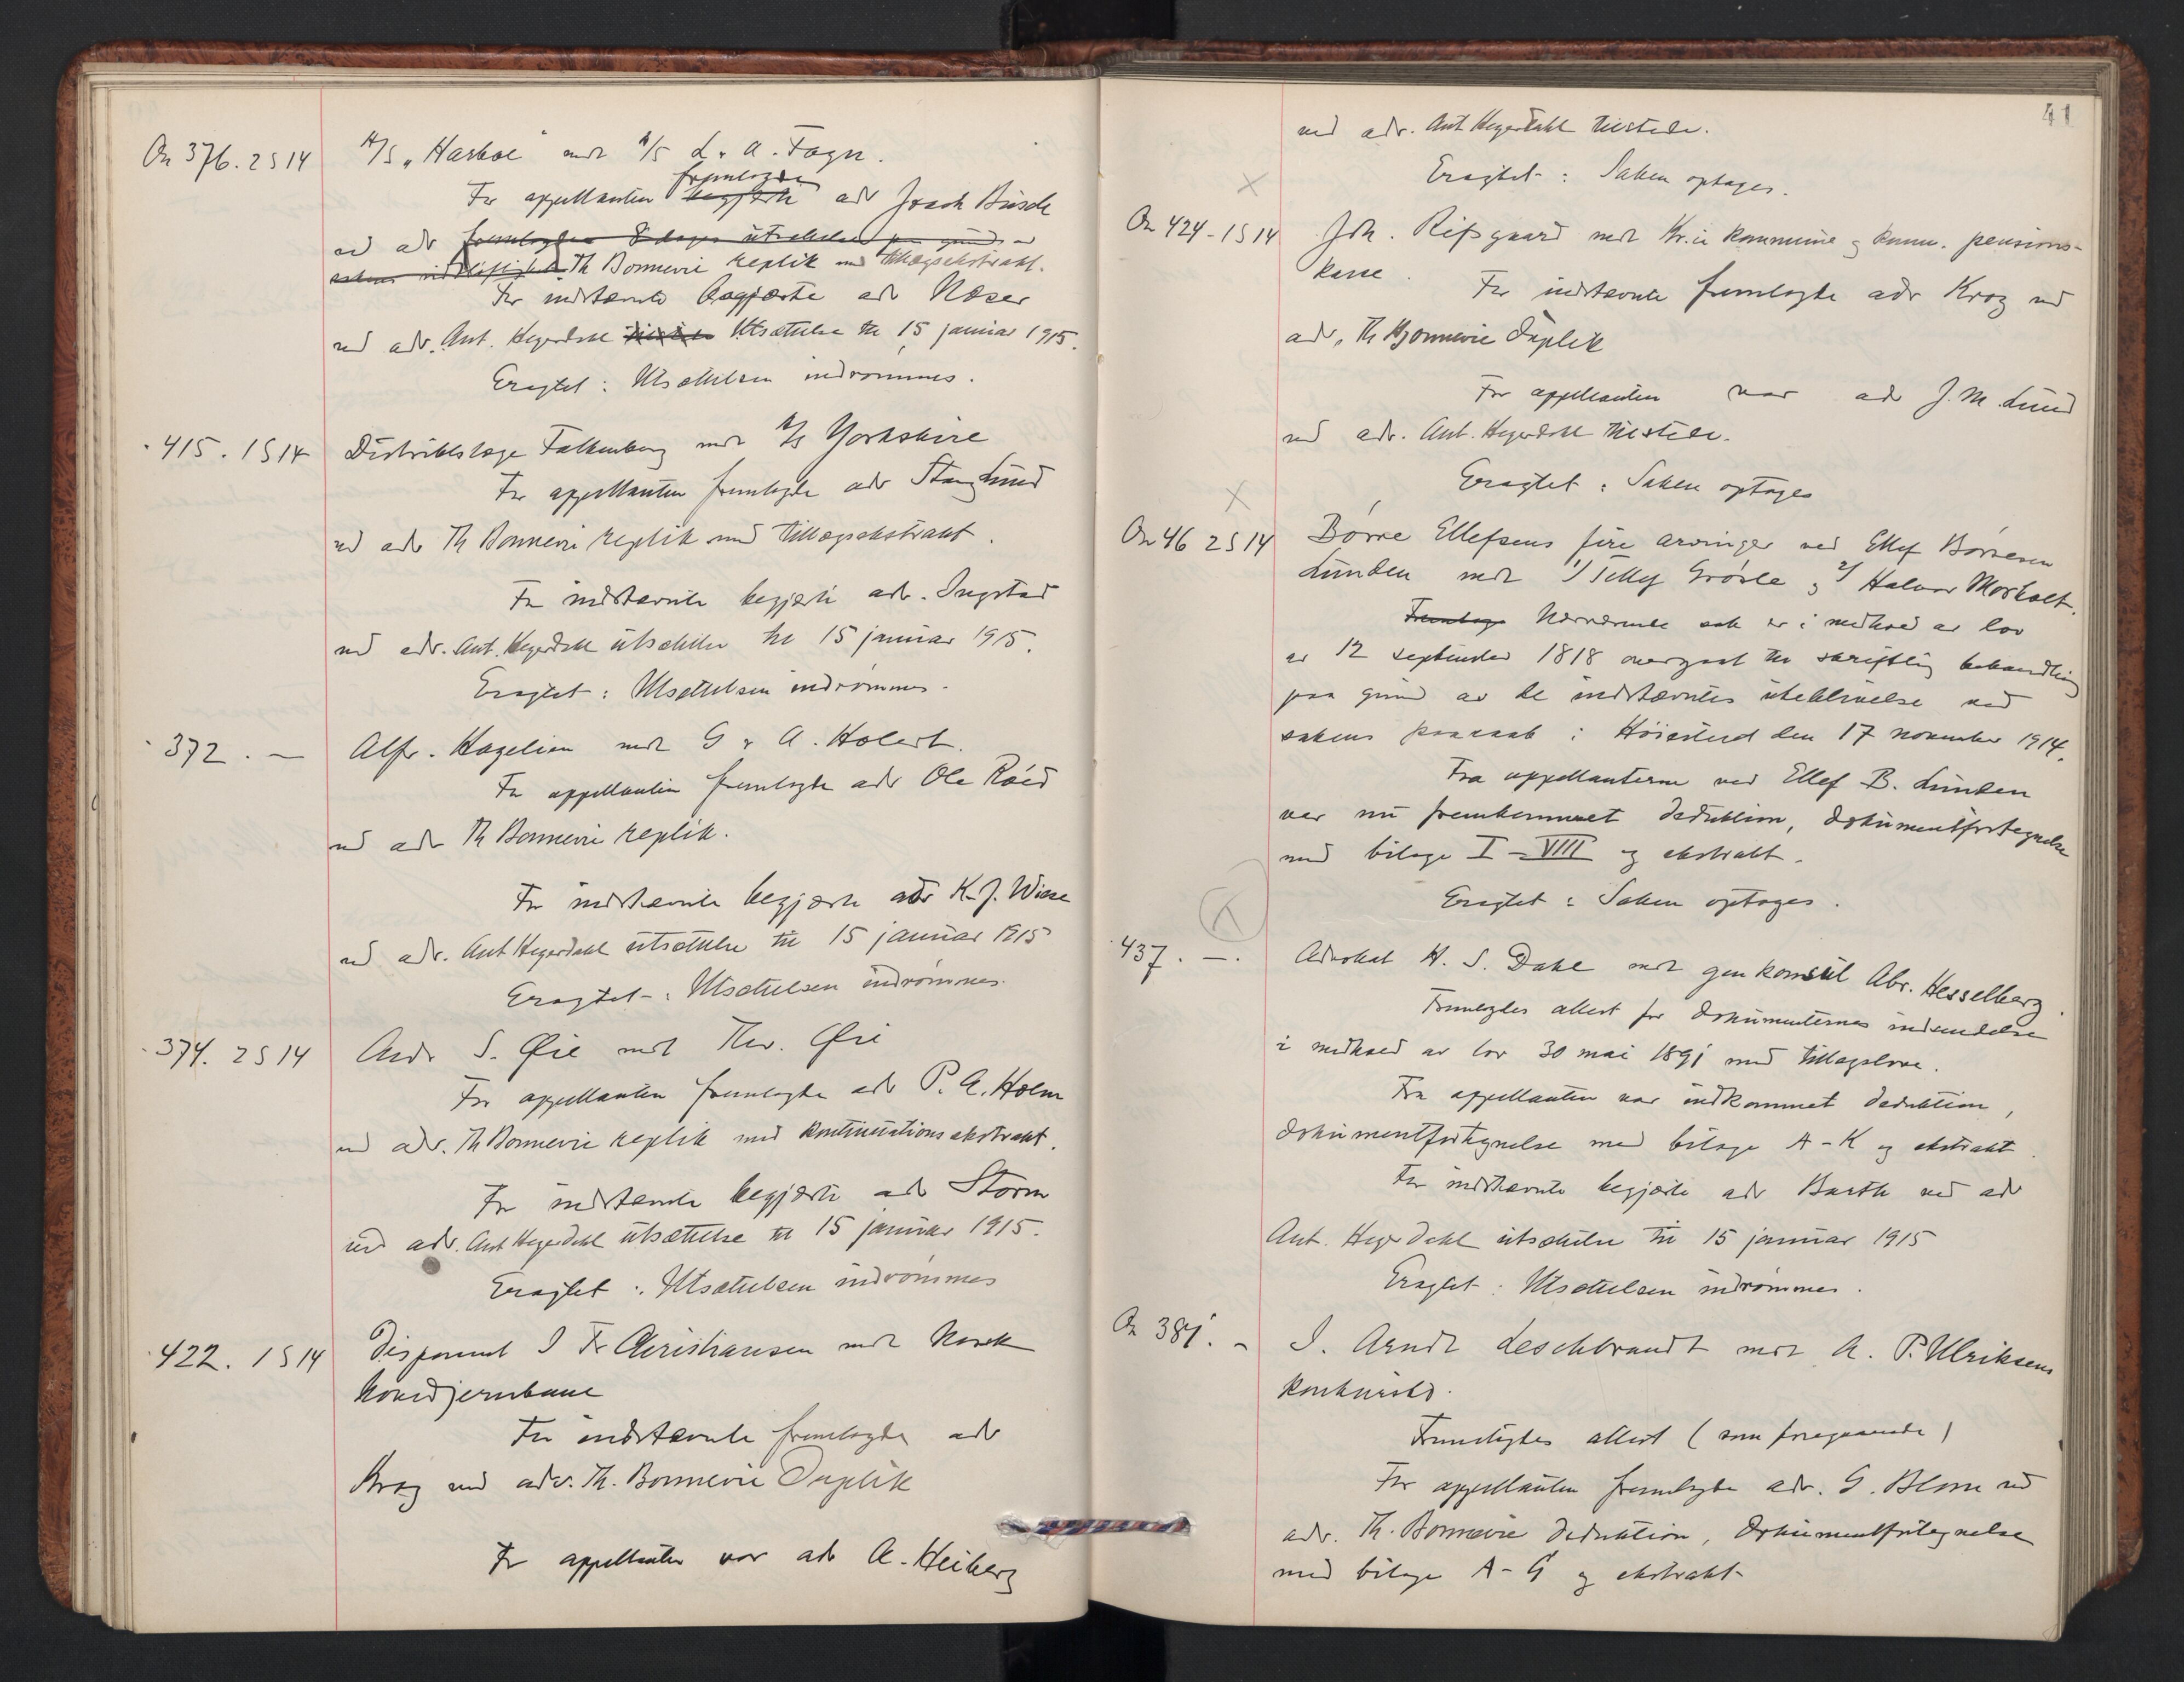 On 376. 2 S 14 A/S „Harboe" mot A/S L. A. Fagn.
fremlagde
For appellanten begjærte adv Joach Busch
ved adv fremlagde 8 dages utsættelse paa grund av
sakens vidtløftighet Th Bonnevie replik med tillægsekstrakt.
For indstævnte begjærte adv Næser
ved adv. Ant. Hegerdahl utsættelse til 15 januar 1915.
Eragtet: Utsættelsen indrømmes.
415. 1 S 14 Distriktslæge Falkenberg mot A/S Yorkshire
For appellanten fremlagde adv Stang Lund
ved adv Th Bonnevie replik med tillægsekstrakt.
For indstævnte begjærte adv. Ingstad
ved adv. Ant. Hegerdahl utsættelse til 15 januar 1915.
Eragtet: Utsættelsen indrømmes.
372. — Alfr. Hagelien mot G & A. Holert.
For appellanten fremlagde adv Ole Røed
ved adv Th Bonnevie replik.
For indstævnte begjærte adv K. J. Wiese
ved adv. Ant Hegerdahl utsættelse til 15 januar 1915
Eragtet: Utsættelsen indrømmes.
374. 2 S 14 Andr S. Øie mot Thv. Øie
For appellanten fremlagde adv P. A. Holm
ved adv. Th Bonnevie replik med kontinuationsekstrakt.
For indstævnte begjærte adv Storm
ved adv. Ant Hegerdahl utsættelse til 15 januar 1915.
Eragtet: Utsættelsen indrømmes
422. 1 S 14 Disponent I Fr Christiansen mot Norsk
hovedjernbane
For indstævnte fremlagde adv
Krag ved adv. Th. Bonnevie Duplik
For appellanten var adv A. Heiberg
41
ved adv. Ant Hegerdahl tilstede.
Eragtet: Saken optages.
On 424 - 1 S 14 Joh. Risgaard mot Kr.ia kommune og komm. pensions-
kasse.
For indstævnte fremlagde adv Krag ved
adv. Th Bonnevie duplik
For appellanten var adv J. M. Lund
ved adv. Ant. Hegerdahl tilstede.
Eragtet: Saken optages
On 46 2 S 14 Børre Ellefsens fire arvinger ved Ellef Børresen
Lunden mot 1/ Telley Grøsle og 2/ Halvor Morholt.
Fremlags Nærværende sak er i medhold av lov
av 12 september 1818 overgaat til skriftlig behandling
paa grund av de indstævntes uteblivelse ved
sakens paaraab i Høiesteret den 17 november 1914.
Fra appellanterne ved Ellef B. Lunden
var nu fremkommet deduktion, dokumentfortegnelse
med bilage I - VIII og ekstrakt.
Eragtet: Saken optages.
437. —. Advokat H. S. Dahl mot gen konsul Abr. Hesselberg.
Fremlagdes attest for dokumenternes indsendelse
i medhold av lov 30 mai 1891 med tillægslove.
Fra appellanten var indkommet deduktion,
dokumentfortegnelse med bilage A - K og ekstrakt.
For indstævnte begjærte adv Barth ved adv
Ant. Hegerdahl utsættelse til 15 januar 1915
Eragtet: Utsættelsen indrømmes.
On 381. - I. Arndt Leschbrandt mot A. P. Ulriksens
konkursbo.
Fremlagdes attest (som foregaaende)
For appellanten fremlagde adv. G. Blom ved
adv. Th. Bonnevie deduktion, dokumentfortegnelse
med bilage A - G og ekstrakt